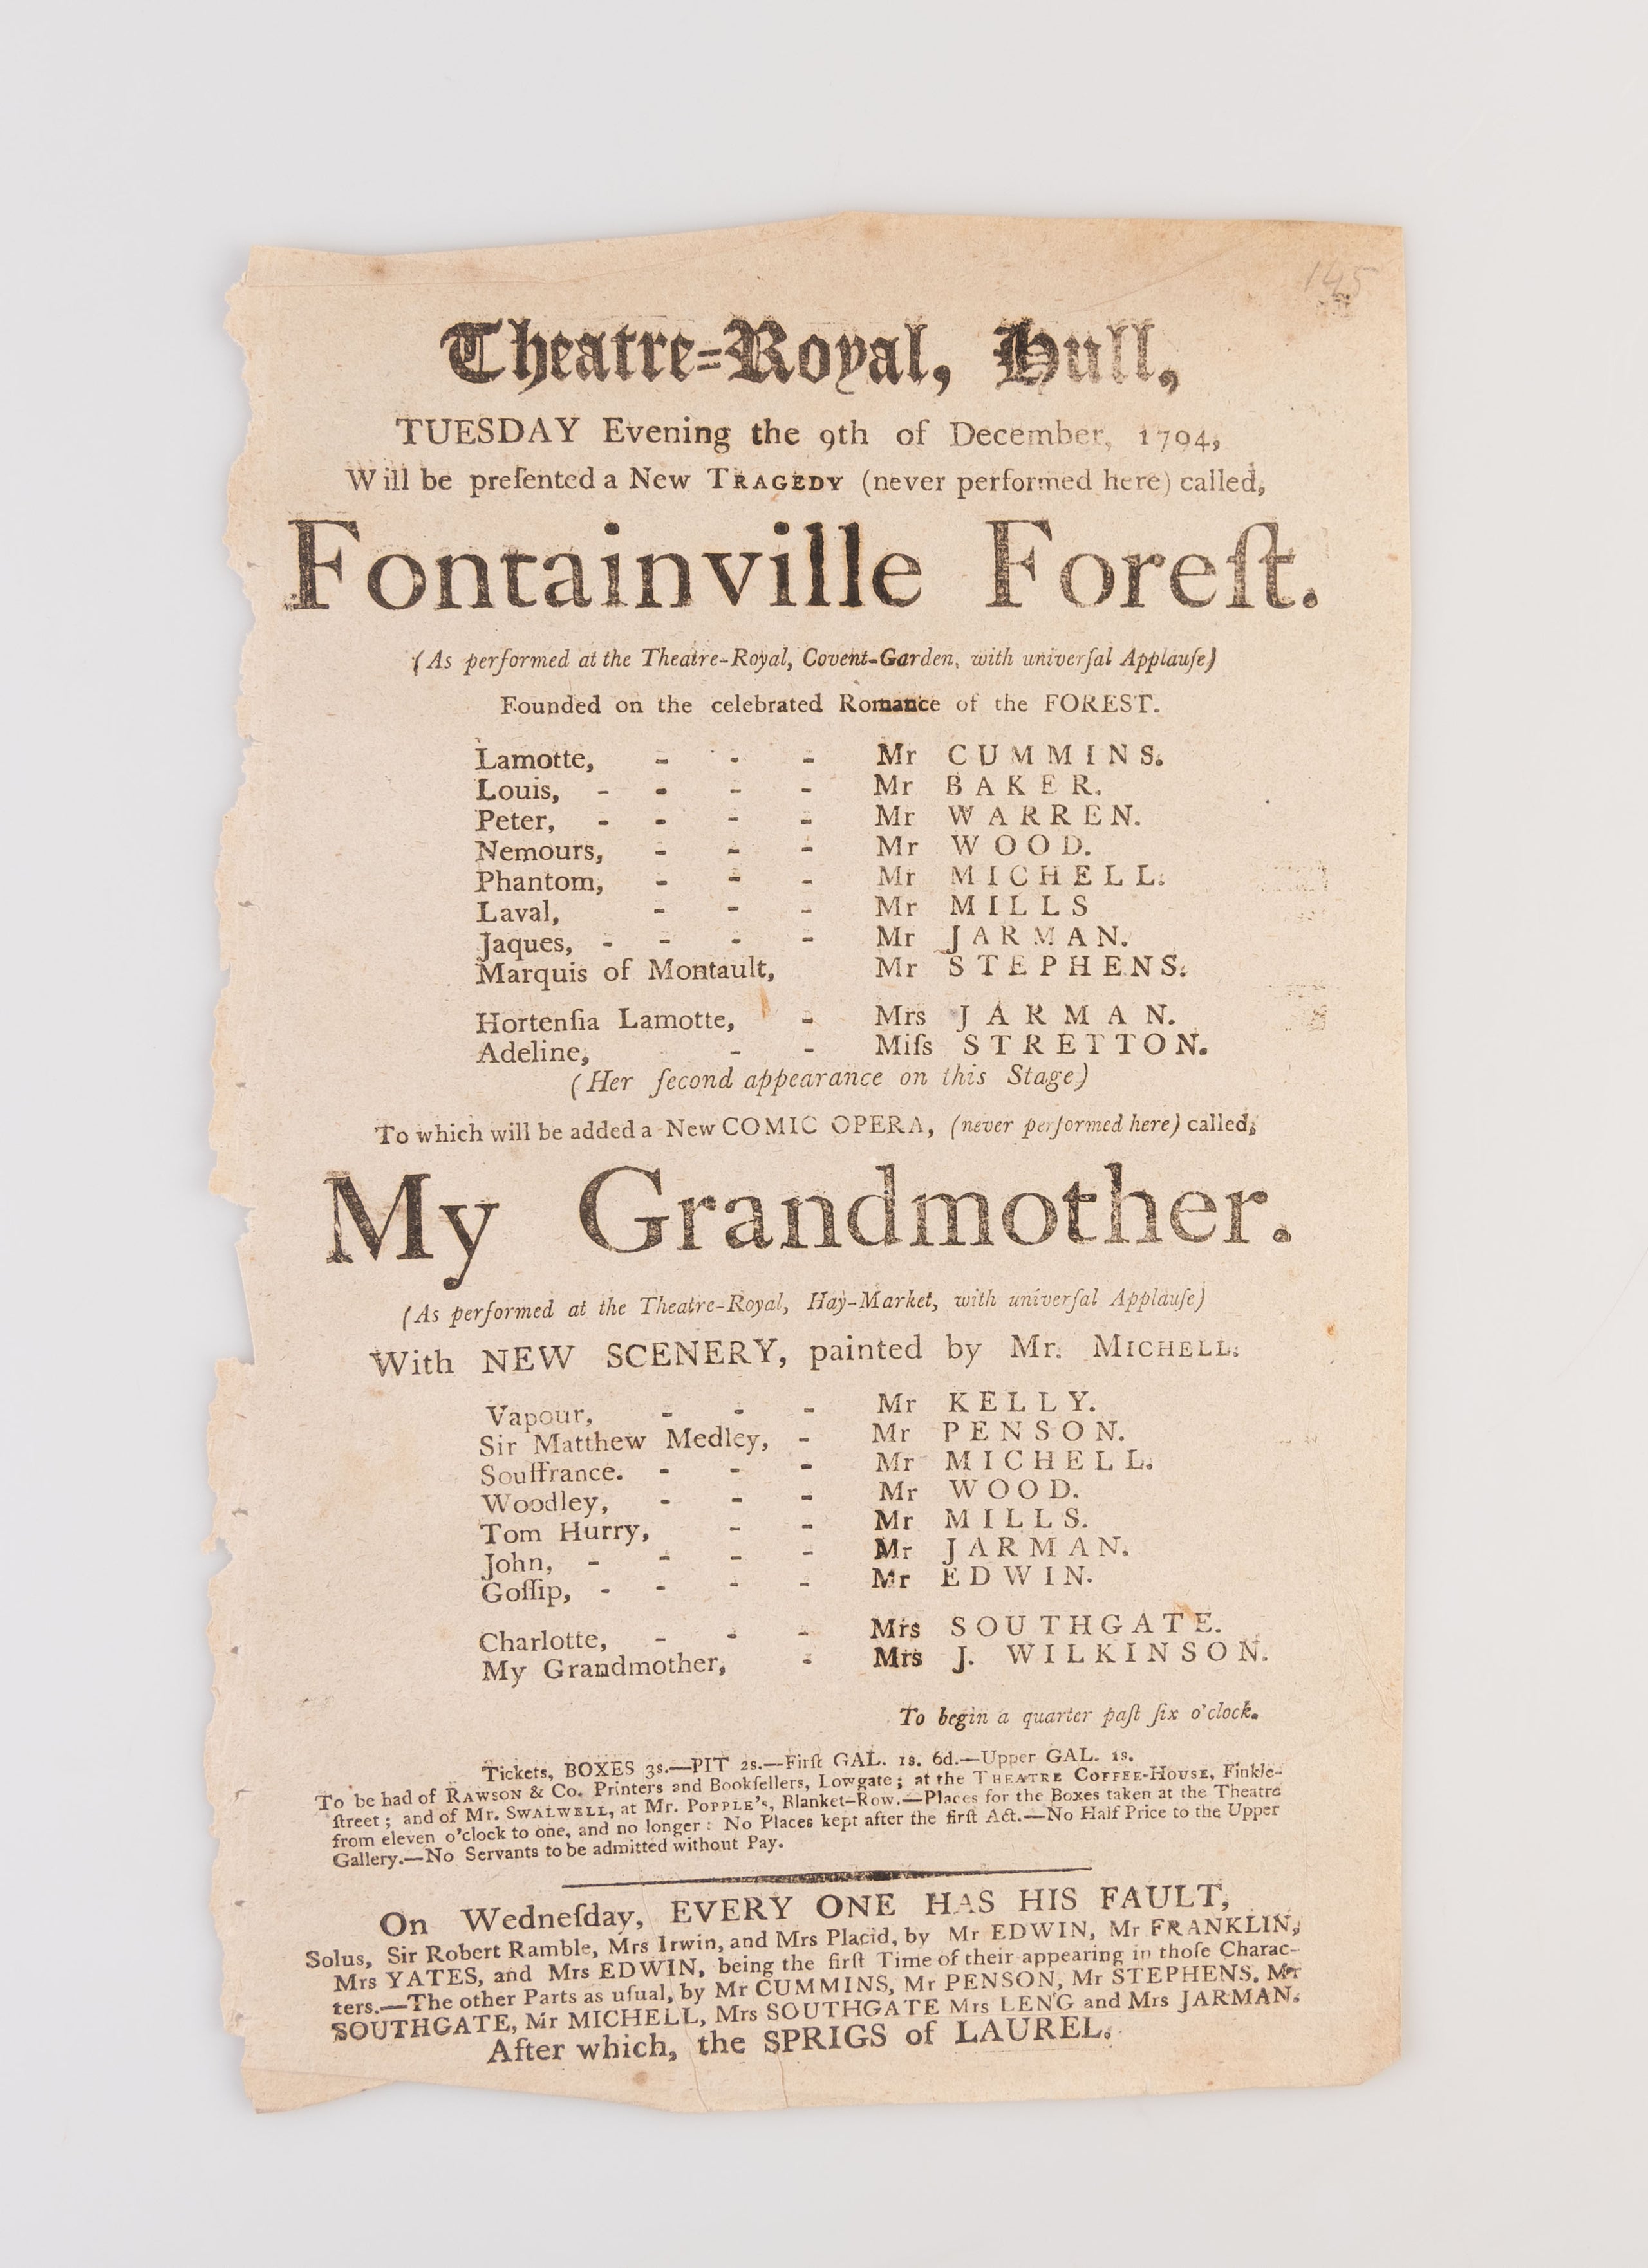 145
Theatre=Royal, Hull,
TUESDAY Evening the 9th of December, 1794,
Will be preſented a New TRAGEDY (never performed here) called,
Fontainville Foreſt.
(As performed at the Theatre-Royal, Covent-Garden, with univerſal Applauſe)
Founded on the celebrated Romance of the FOREST.
Lamotte, - - - Mr CUMMINS.
Louis, - - - - Mr BAKER.
Peter, - - - - Mr WARREN.
Nemours, - - - Mr WOOD.
Phantom, - - - Mr MICHELL.
Laval, - - - Mr MILLS
Jaques, - - - - Mr JARMAN.
Marquis of Montault, Mr STEPHENS.
Hortenſia Lamotte, - Mrs JARMAN.
Adeline, - - Miſs STRETTON.
(Her ſecond appearance on this Stage)
To which will be added a New COMIC OPERA, (never performed here) called,
My Grandmother.
(As performed at the Theatre-Royal, Hay-Market, with univerſal Applauſe)
With NEW SCENERY, painted by Mr. MICHELL.
Vapour, - - - Mr KELLY.
Sir Matthew Medley, - Mr PENSON.
Souffrance. - - - Mr MICHELL.
Woodley, - - - Mr WOOD.
Tom Hurry, - - Mr MILLS.
John, - - - - Mr JARMAN.
Goſſip, - - - - Mr EDWIN.
Charlotte, - - - Mrs SOUTHGATE.
My Grandmother, - Mrs J. WILKINSON.
To begin a quarter paſt ſix o'clock.
Tickets, BOXES 3s.—PIT 2s.—Firſt GAL. 1s. 6d.—Upper GAL. 1s.
To be had of RAWSON & Co. Printers and Bookſellers, Lowgate; at the THEATRE COFFEE-HOUSE, Finkle-
ſtreet; and of Mr. SWALWELL, at Mr. POPPLE's, Blanket-Row.—Places for the Boxes taken at the Theatre
from eleven o'clock to one, and no longer: No Places kept after the firſt Act.—No Half Price to the Upper
Gallery.—No Servants to be admitted without Pay.
On Wedneſday, EVERY ONE HAS HIS FAULT,
Solus, Sir Robert Ramble, Mrs Irwin, and Mrs Placid, by Mr EDWIN, Mr FRANKLIN,
Mrs YATES, and Mrs EDWIN, being the firſt Time of their appearing in thoſe Charac-
ters.—The other Parts as uſual, by Mr CUMMINS, Mr PENSON, Mr STEPHENS, Mr
SOUTHGATE, Mr MICHELL, Mrs SOUTHGATE Mrs LENG and Mrs JARMAN.
After which, the SPRIGS of LAUREL.